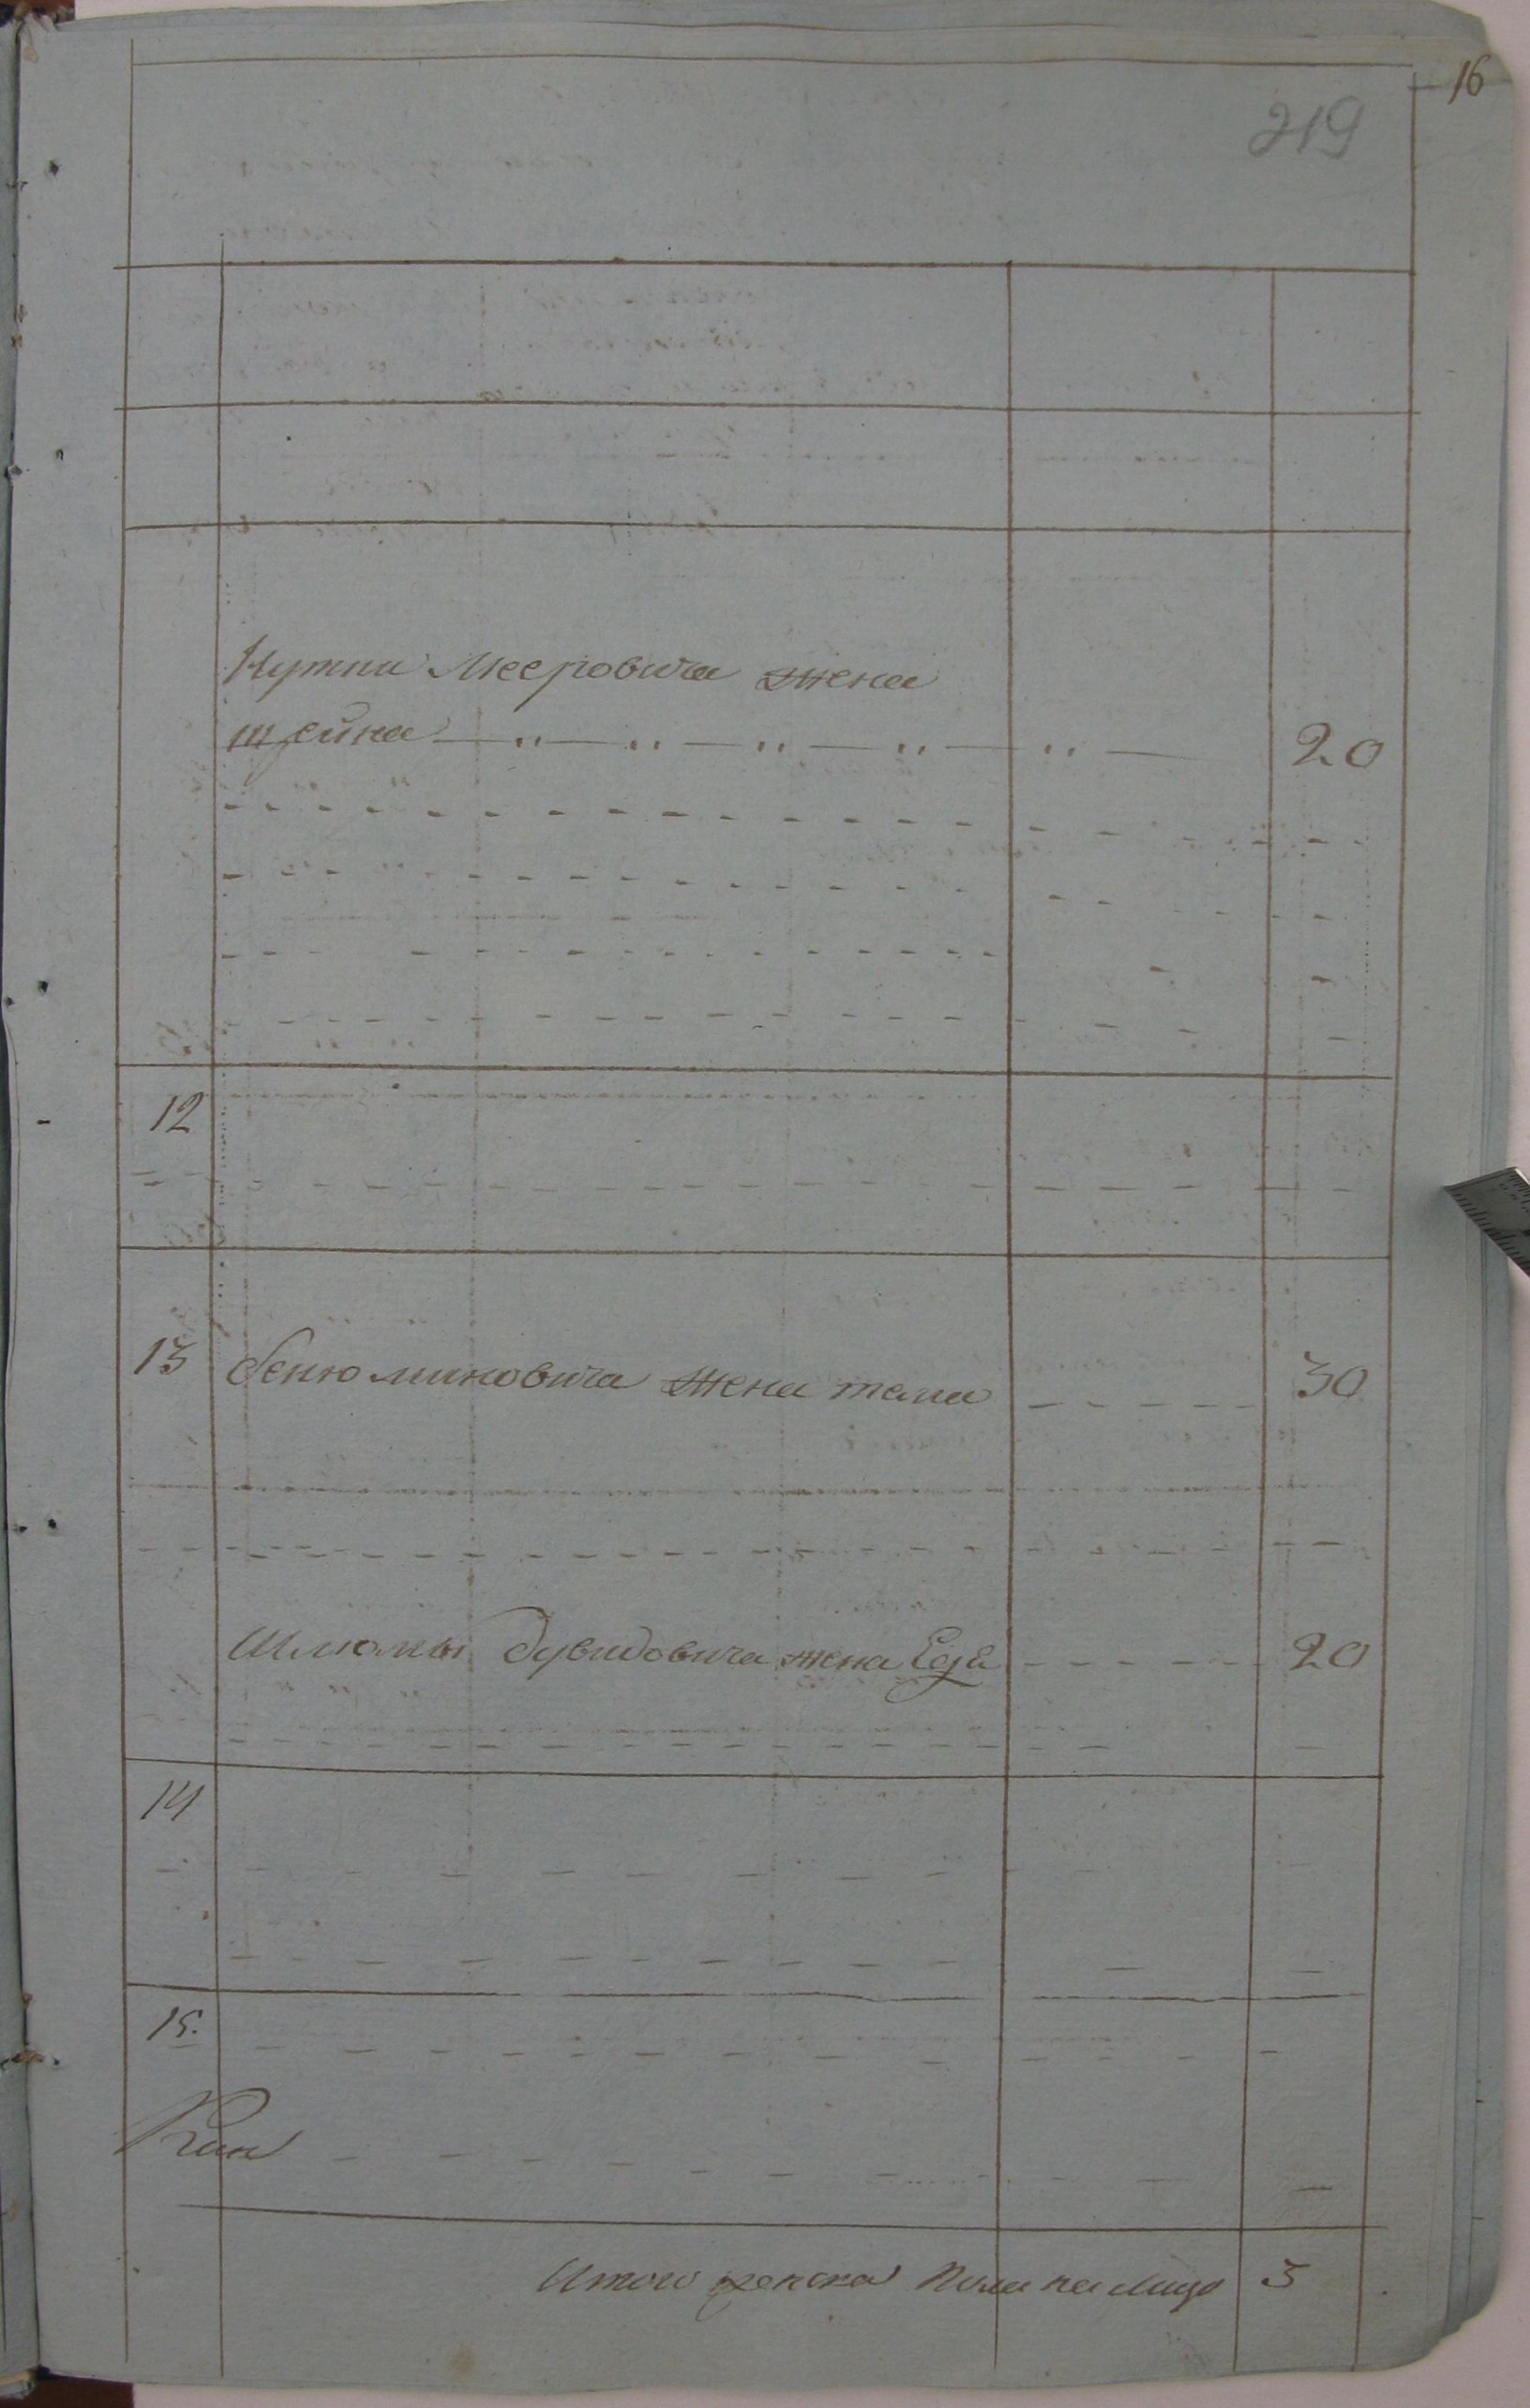 16
219
Нутки Мееровича жена
Шейна 20
12
13 бенюминовича жена 30
Шлюмы дувидовича жена 20
14
15.
Итого женска пола на лицо 3